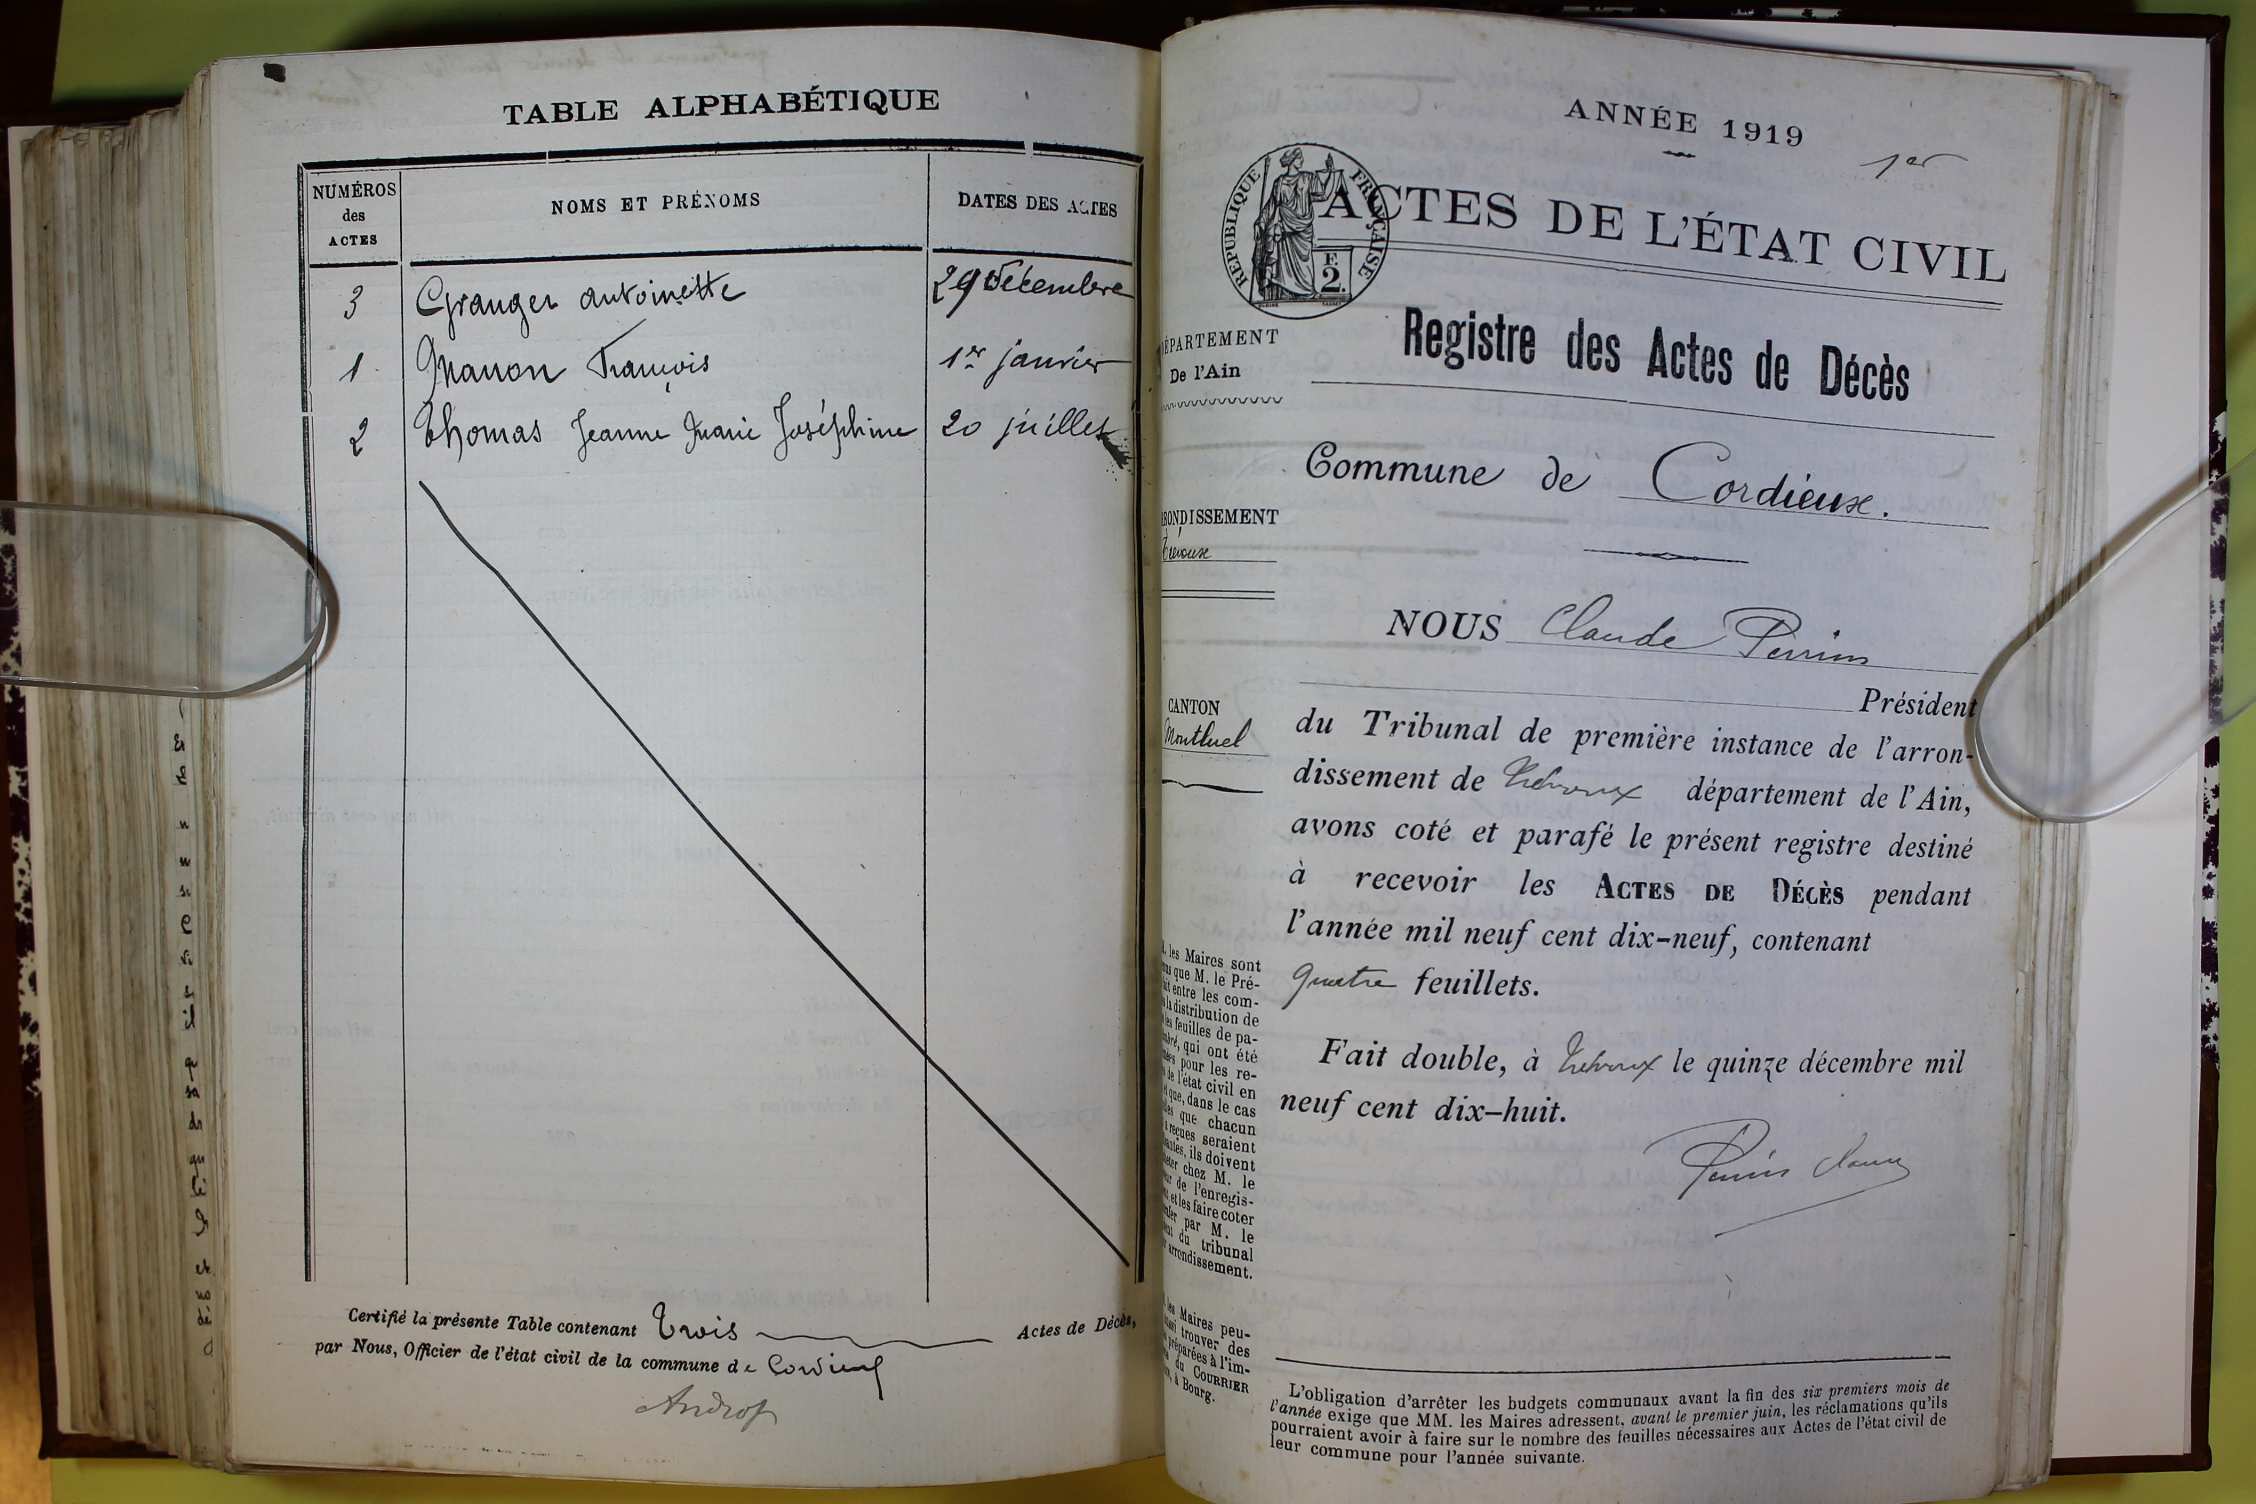 TABLE ALPHABÉTIQUE
NUMÉROS
des
ACTES
NOMS ET PRÉNOMS
DATES DES ACTES
3 Granger antoinette 29 décembre
1 Manon François 1er janvier
2 Thomas Jeanne Marie Joséphine 20 juillet
Certifié la présente Table contenant trois Actes de Décès,
par Nous, Officier de l'état civil de la commune de Cordieux
ANNÉE 1919
1er
ACTES DE L'ÉTAT CIVIL
RÉPUBLIQUE FRANÇAISE
F.
2.
Registre des Actes de Décès
ÉPARTEMENT
De l'Ain
Commune de Cordieux.
RONDISSEMENT
Trévoux
NOUS Claude Perrin
Président
CANTON
Montluel
du Tribunal de première instance de l'arron-
dissement de Trévoux département de l'Ain,
avons coté et parafé le présent registre destiné
à recevoir les ACTES DE DÉCÈS pendant
l'année mil neuf cent dix-neuf, contenant
quatre feuillets.
Fait double, à Trévoux le quinze décembre mil
neuf cent dix-huit.
les Maires sont
que M. le Pré-
entre les com-
la distribution de
les feuilles de pa-
qui ont été
pour les re-
de l'état civil en
que, dans le cas
que chacun
reçues seraient
ils doivent
chez M. le
de l'enregis-
et les faire coter
par M. le
du tribunal
arrondissement.
les Maires peu-
trouver des
préparées à l'im-
du COURRIER
à Bourg.
L'obligation d'arrêter les budgets communaux avant la fin des six premiers mois de
l'année exige que MM. les Maires adressent, avant le premier juin, les réclamations qu'ils
pourraient avoir à faire sur le nombre des feuilles nécessaires aux Actes de l'état civil de
leur commune pour l'année suivante.